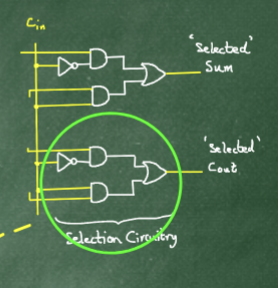 Cin
"Selected"
Sum
'Selected'
Cout
Selection Circuitry